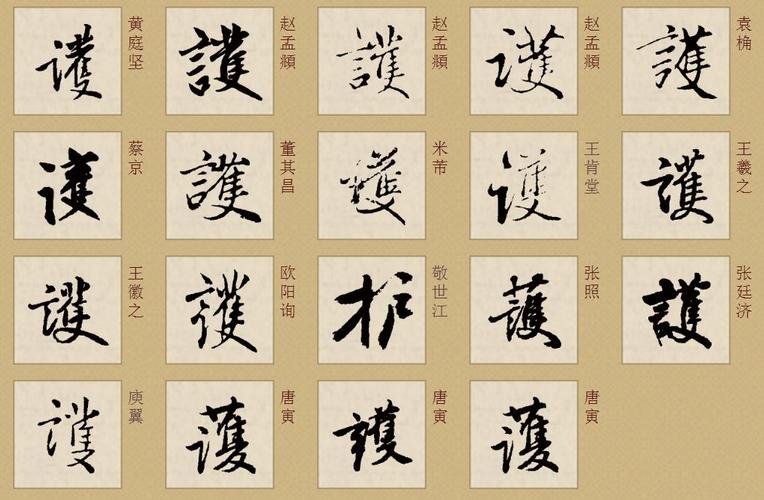 護 黄庭坚 護 赵孟頫 護 赵孟頫 護 赵孟頫 護 袁桷
護 蔡京 護 董其昌 護 米芾 護 王肯堂 護 王羲之
護 王徽之 護 欧阳询 护 敬世江 護 张照 護 张廷济
護 庾翼 護 唐寅 護 唐寅 護 唐寅